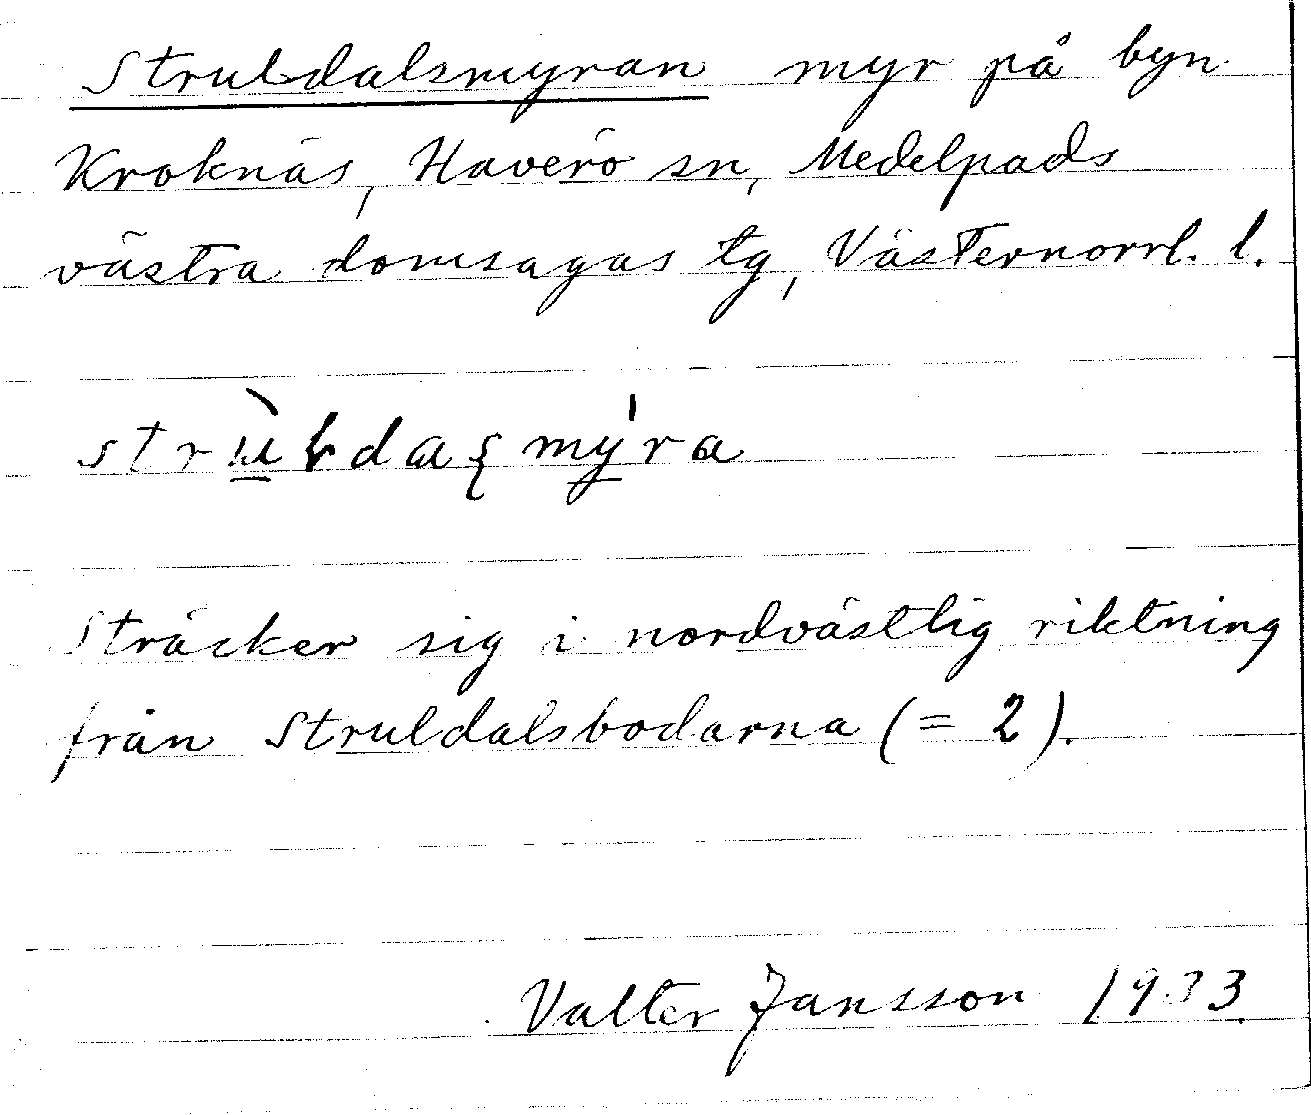 Struldalsmyran myr på byn
Kroknäs, Haverö sn, Medelpads
västra domsagas tg, Västernorrl. l.
Sträcker sig i nordvästlig riktning
från Struldalsbodarna (= 2).
Valter Jansson 1933.